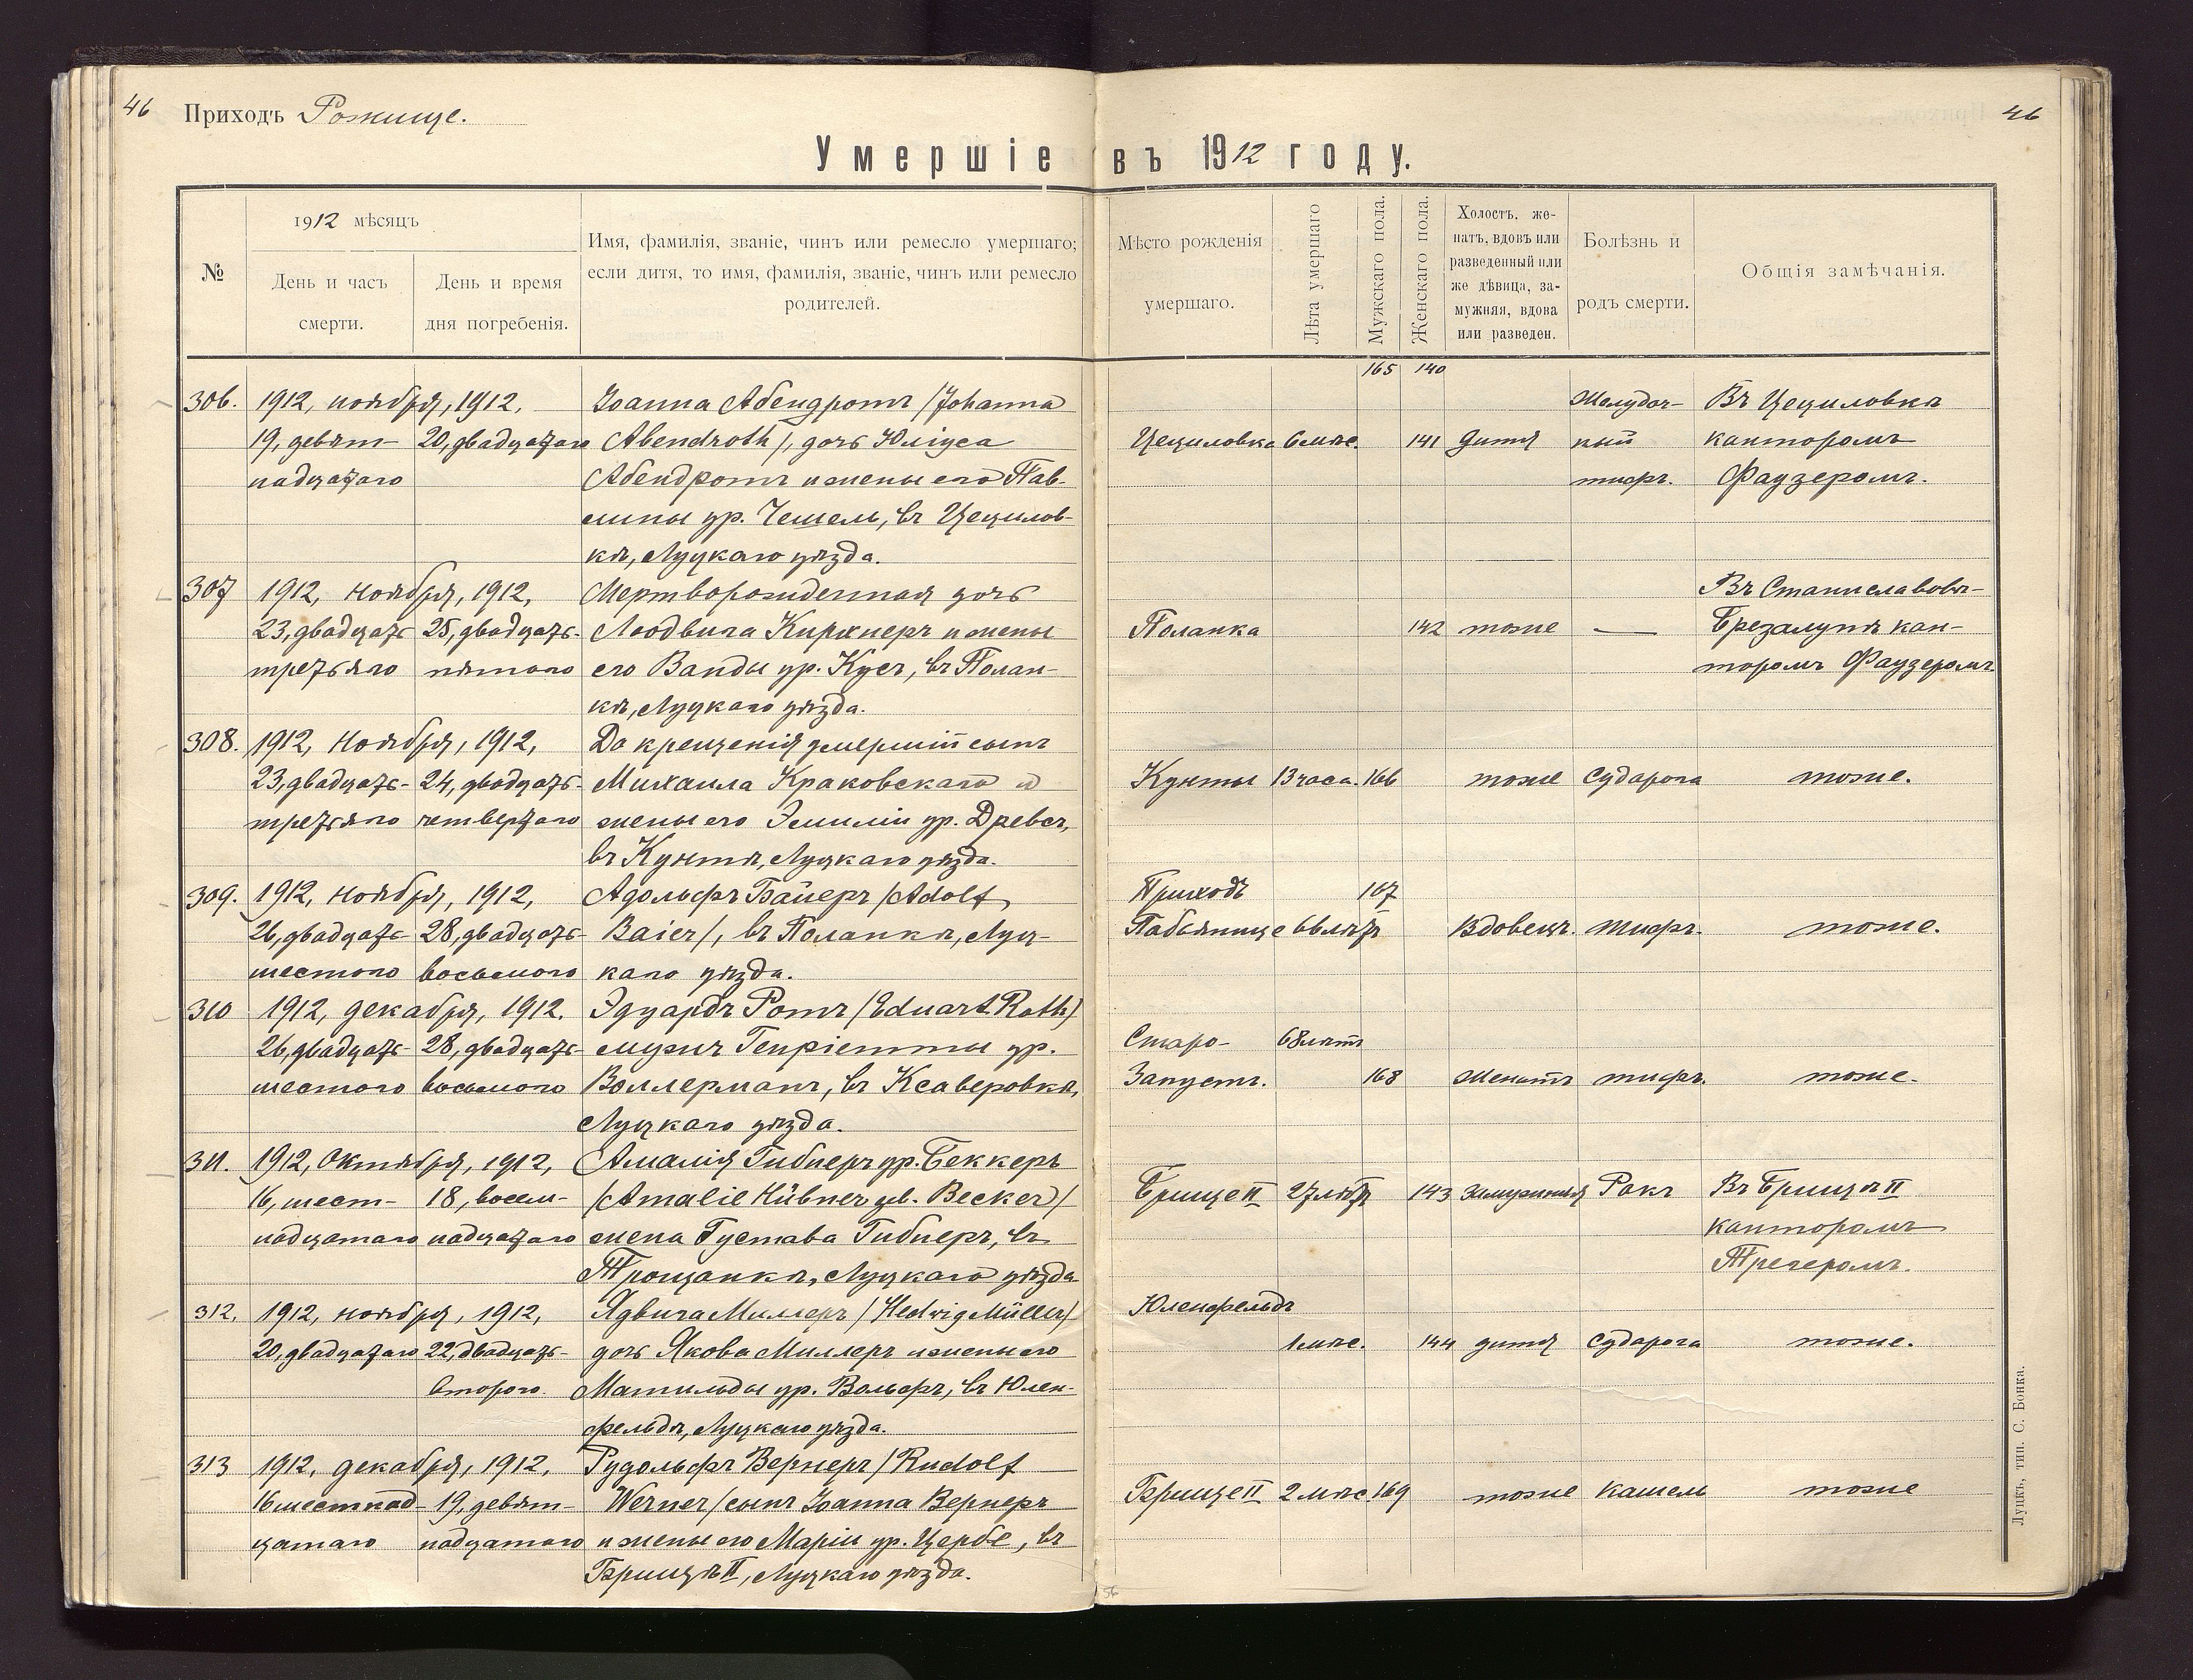 46 Приходъ Рожище.
46
Умершіе въ 1912 году.
№
1912 мѣсяцъ
День и часъ
смерти.
День и время
дня погребенія.
Имя, фамилія, званіе, чинъ или ремесло умершаго;
если дитя, то имя, фамилія, званіе, чинъ или ремесло
родителей.
Мѣсто рожденія
умершаго.
Лѣта умершаго
Мужскаго пола.
Женскаго пола.
Холостъ, же-
натъ, вдовъ или
разведенный или
же дѣвица, за-
мужняя, вдова
или разведен.
Болѣзнь и
родъ смерти.
Общія замѣчанія.
165 140
306. 1912, ноября, 1912, Іоанна Абендротъ /Johanna Желудоч- Въ Цециловкѣ
19, девят- 20, двадцатаго Abendroth/, дочь Юліуса Цециловка 6 мѣс. 141 дитя ный канторомъ
надцатаго Абендротъ и жены его Пав- тифъ. Фаузеромъ.
лины ур. Чешель, въ Цецилов-
кѣ, Луцкаго уѣзда.
307 1912, ноября, 1912, Мертворожденная дочь Въ Станиславовѣ-
23, двадцать 25, двадцать- Людвига Кирхнеръ и жены Поланка 142 тоже — Брезалупѣ кан-
третьяго пятого его Ванды ур. Кусъ, въ Полан- торомъ Фаузеромъ
кѣ, Луцкаго уѣзда.
308. 1912, ноября, 1912, До крещенія умершій сынъ
23, двадцать- 24, двадцать- Михаила Краковскаго и Кунты 13 часа. 166 тоже Судорога тоже.
третьяго четвертаго жены его Эмиліи ур. Древсъ,
въ Кунтѣ, Луцкаго уѣзда.
309. 1912, ноября, 1912, Адольфъ Байеръ /Adolf Приходъ 167
26, двадцать- 28, двадцать- Baier/, въ Поланкѣ, Луц- Пабьянице 66 лѣтъ Вдовецъ. тифъ. тоже.
шестого восьмого каго уѣзда.
310 1912, декабря, 1912. Эдуардъ Ротъ /Eduart Roth/
26, двадцать- 28, двадцать- мужъ Генріетты ур. Старо- 68 лѣтъ
шестого восьмого Воллерманъ, въ Ксаверовкѣ, Запустъ. 168 Женатъ тифъ. тоже.
Луцкаго уѣзда.
311. 1912, Октября, 1912, Амалія Гибнеръ ур. Беккеръ
16, шест- 18, восем- /Amalie Hübner geb. Becker/ Брище II 27 лѣтъ 143 замужняя Ракъ Въ Брищѣ II
надцатаго надцатаго жена Густава Гибнеръ, въ канторомъ
Трощанкѣ, Луцкаго уѣзда Трегеромъ.
312. 1912, ноября, 1912, Ядвига Миллеръ /Hedwig Müller/ Юленфельдъ
20, двадцатаго 22, двадцать- дочь Якова Миллеръ и жены его 1 мѣс. 144 дитя Судорога тоже.
второго. Матильды ур. Вольфъ, въ Юлен-
фельдѣ, Луцкаго уѣзда.
313 1912, декабря, 1912, Рудольфъ Вернеръ /Rudolf
16 шестнад- 19, девят- Werner/ сынъ Іоанна Вернеръ Брище II 2 мѣс. 169 тоже кашель тоже
цатаго надцатаго и жены его Маріи ур. Цербе, въ
Брищѣ II, Луцкаго уѣзда.
Луцкъ, тип. С. Бонка.
56